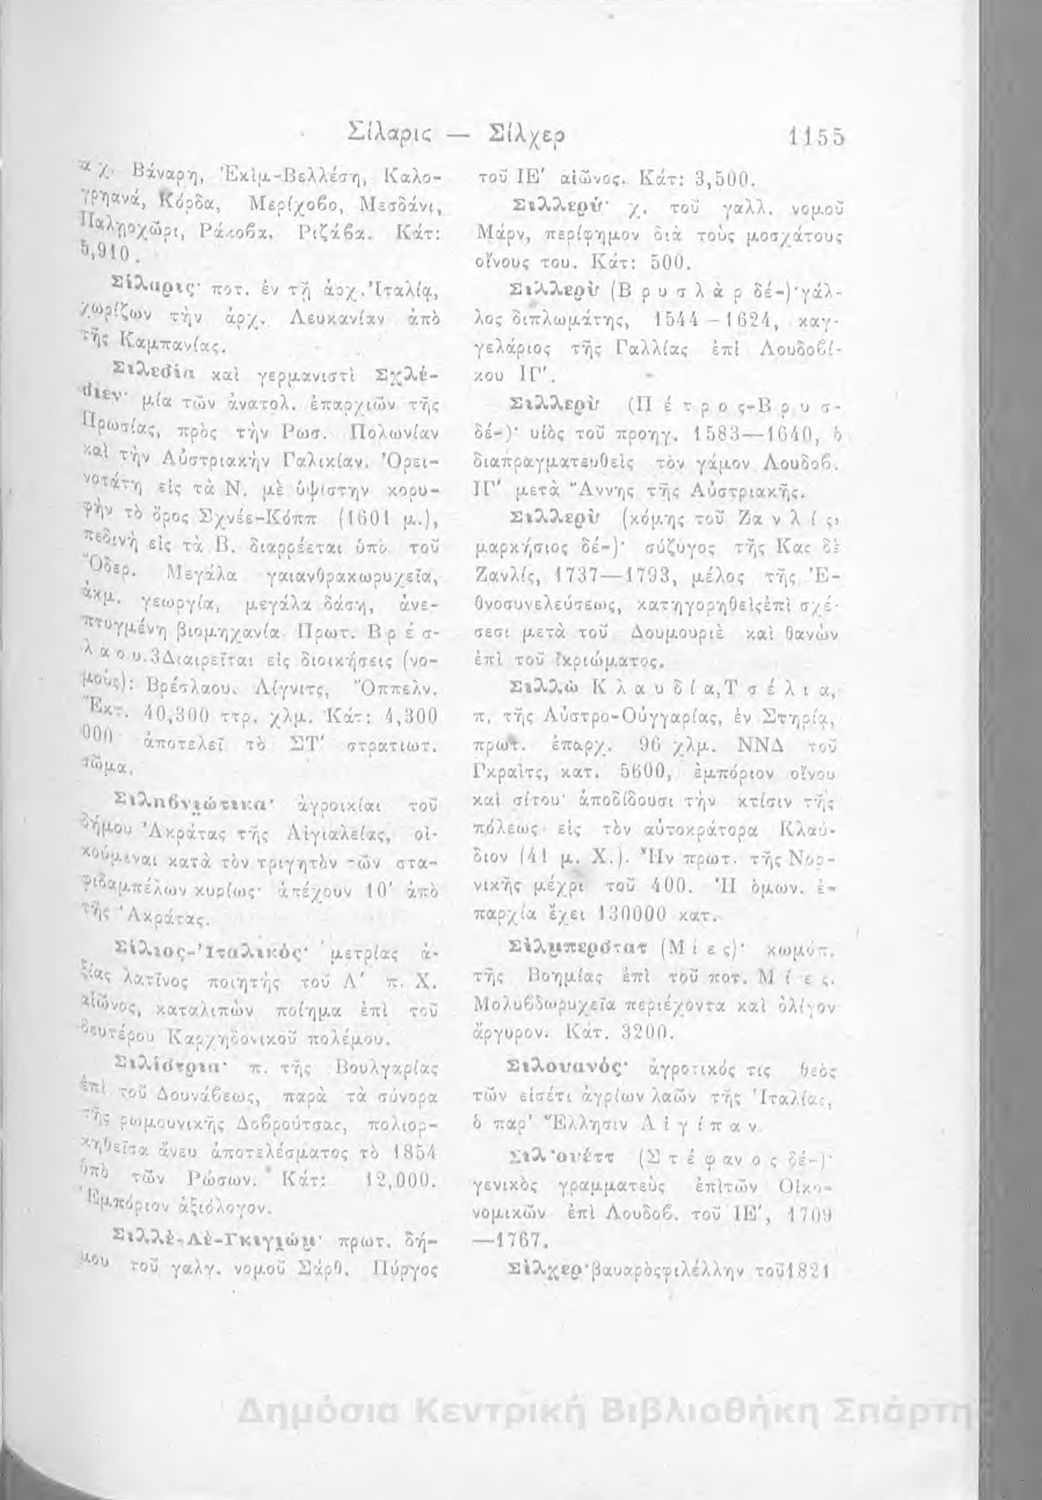 Σίλαρις — Σίλχερ
1155
α χ. Βάναρη, Ἐκὶμ-Βελλέση, Καλο-
γρηανά, Κόρδα, Μερίχοβο, Μεσδάνι,
Παληοχῶρι, Ράκοβα, Ριζάβα. Κάτ:
5,910.
Σίλαρις· ποτ. ἐν τῇ ἀρχ. Ἰταλίᾳ,
χωρίζων τὴν ἀρχ. Λευκανίαν ἀπὸ
τῆς Καμπανίας.
Σιλεσία καὶ γερμανιστὶ Σχλέ-
σιεν· μία τῶν ἀνατολ. ἐπαρχιῶν τῆς
Πρωσίας, πρὸς τὴν Ρωσ. Πολωνίαν
καὶ τὴν Αὐστριακὴν Γαλικίαν. Ὀρει-
νοτάτη εἰς τὰ Ν. μὲ ὑψίστην κορυ-
φὴν τὸ ὄρος Σχνέε-Κόππ (1601 μ.),
πεδινὴ εἰς τὰ Β. διαρρέεται ὑπὸ τοῦ
Ὄδερ. Μεγάλα γαιανθρακωρυχεῖα,
ἀκμ. γεωργία, μεγάλα δάση, ἀνε-
πτυγμένη βιομηχανία. Πρωτ. Βρέσ-
λαου.3Διαιρεῖται εἰς διοικήσεις (νο-
μούς): Βρέσλαου, Λίγνιτς, Ὄππελν.
Ἔκτ. 40,300 ττρ. χλμ. Κάτ: 4,300
000 ἀποτελεῖ τὸ ΣΤ' στρατιωτ.
σῶμα.
Σιληβνιώτικα· ἀγροικίαι τοῦ
δήμου Ἀκράτας τῆς Αἰγιαλείας, οἰ-
κούμεναι κατὰ τὸν τριγητὸν τῶν στα-
φιδαμπέλων κυρίως· ἀπέχουν 10' ἀπὸ
τῆς Ἀκράτας.
Σίλιος-Ἰταλικός· μετρίας ἀ-
ξίας λατῖνος ποιητής τοῦ Α' π. Χ.
αἰῶνος, καταλιπὼν ποίημα ἐπὶ τοῦ
δευτέρου Καρχηδονικοῦ πολέμου.
Σιλίστρια· π. τῆς Βουλγαρίας
ἐπὶ τοῦ Δουνάβεως, παρὰ τὰ σύνορα
τῆς ρωμουνικῆς Δοβρούτσας, πολιορ-
κηθεῖσα ἄνευ ἀποτελέσματος τὸ 1854
ὑπὸ τῶν Ρώσων. Κάτ: 12,000.
Ἐμπόριον ἀξιόλογον.
Σιλλέ-Λέ-Γκιγιώμ· πρωτ. δή-
μου τοῦ γαλγ. νομοῦ Σάρθ. Πύργος
τοῦ ΙΕ' αἰῶνος. Κάτ: 3,500.
Σιλλερύ· χ. τοῦ γαλλ. νομοῦ
Μάρν, περίφημον διὰ τοὺς μοσχάτους
οἴνους του. Κάτ: 500.
Σιλλερὺ (Βρυσλὰρ δέ-)·γάλ-
λος διπλωμάτης, 1544 –1624, καγ-
γελάριος τῆς Γαλλίας ἐπὶ Λουδοβί-
κου ΙΓ'.
Σιλλερὺ (Πέτρος-Βρυσ-
δέ-)· υἱὸς τοῦ προηγ. 1583—1640, ὁ
διαπραγματευθεὶς τὸν γάμον Λουδοβ.
ΙΓ' μετὰ Ἄννης τῆς Αὐστριακῆς.
Σιλλερὺ (κόμης τοῦ Ζανλίς,
μαρκήσιος δέ-)· σύζυγος τῆς Κας δὲ
Ζανλίς, 1737—1793, μέλος τῆς Ἐ-
θνοσυνελεύσεως, κατηγορηθεὶςἐπὶ σχέ-
σεσι μετὰ τοῦ Δουμουριὲ καὶ θανὼν
ἐπὶ τοῦ ἰκριώματος.
Σιλλὼ Κλαυδία,Τσέλια,
π. τῆς Αὐστρο-Οὐγγαρίας, ἐν Στηρίᾳ,
πρωτ. ἐπαρχ. 96 χλμ. ΝΝΔ τοῦ
Γκραὶτς, κατ. 5600, ἐμπόριον οἴνου
καὶ σίτου· ἀποδίδουσι τὴν κτίσιν τῆς
πόλεως εἰς τὸν αὐτοκράτορα Κλαύ-
διον (41 μ. Χ.). Ἦν πρωτ. τῆς Νορ-
νικῆς μέχρι τοῦ 400. Ἡ ὁμων. ἐ-
παρχία ἔχει 130000 κατ.
Σίλμπερστατ (Μίες)· κωμόπ.
τῆς Βοημίας ἐπὶ τοῦ ποτ. Μίες.
Μολυβδωρυχεῖα περιέχοντα καὶ ὀλίγον
ἄργυρον. Κάτ. 3200.
Σιλουανός· ἀγροτικός τις θεὸς
τῶν εἰσέτι ἀγρίων λαῶν τῆς Ἰταλίας,
ὁ παρ' Ἕλλησιν Αἰγίπαν
Σιλ'ουέττ (Στέφανος δέ-)·
γενικὸς γραμματεὺς ἐπὶτῶν Οἰκο-
νομικῶν ἐπὶ Λουδοβ. τοῦ ΙΕ', 1709
—1767.
Σὶλχερ·βαυαρὸςφιλέλλην τοῦ1821
Δημόσια Κεντρική Βιβλιοθήκη Σπάρτης